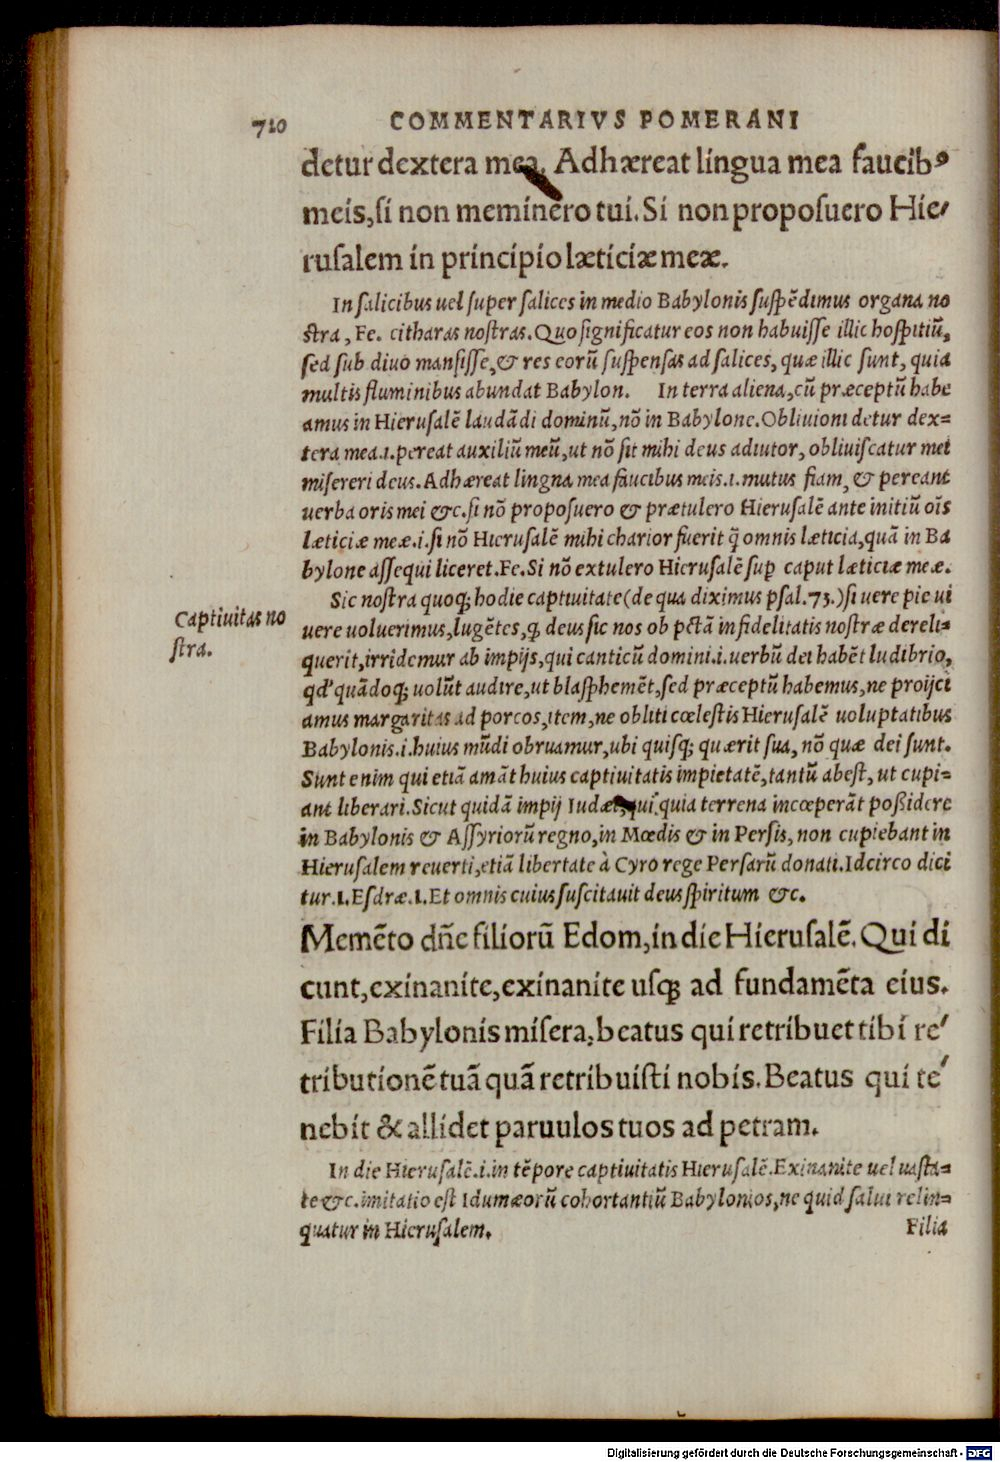 710 COMMENTARIVS POMERANI
detur dextera mea. Adhæreat lingua mea faucibꝰ
meis,si non meminero tui.Si non proposuero Hie-
rusalem in principio læticiæ meæ.
In salicibus uel super salices in medio Babylonis suspēdimus organa no
stra, Fe. citharas nostras.Quo significatur eos non habuisse illic hospitiū,
sed sub diuo mansisse,& res eorū suspensas ad salices, quæ illic sunt, quia
multis fluminibus abundat Babylon. In terra aliena,cū præceptū habe
amus in Hierusalē laudādi dominū,nō in Babylone.Obliuioni detur dex=
tera mea.i.pereat auxiliū meū,ut nō sit mihi deus adiutor, obliuiscatur mei
misereri deus.Adhæreat lingna mea faucibus meis.i.mutus fiam, & pereant
uerba oris mei &c.si nō proposuero & prætulero Hierusalē ante initiū oīs
læticiæ meæ.i.si nō Hierusalē mihi charior fuerit q̃ omnis læticia,quā in Ba
bylone assequi liceret.Fe.Si nō extulero Hierusalē sup caput læticiæ meæ.
Sic nostra quoq; hodie captiuitate(de qua diximus psal.73.)si uere pie ui
Captiuitas no
stra.
uere uoluerimus,lugētes,q̱ deus sic nos ob pctā infidelitatis nostræ dereli=
querit,irridemur ab impijs,qui canticū domini.i.uerbū dei habēt ludibrio,
qd' quādoq; uolūt audire,ut blasphemēt,sed præceptū habemus,ne proijci
amus margaritas ad porcos,item,ne obliti cœlestis Hierusalē uoluptatibus
Babylonis.i.huius mūdi obruamur,ubi quisq; quærit sua, nō quæ dei sunt.
Sunt enim qui etiā amāt huius captiuitatis impietatē,tantū abest, ut cupi=
ant liberari.Sicut quidā impij Iudæi,qui,quia terrena incœperāt poßidere
in Babylonis & Assyriorū regno,in Mœdis & in Persis, non cupiebant in
Hierusalem reuerti,etiā libertate à Cyro rege Persarū donati.Idcirco dici
tur.1.Esdræ.1.Et omnis cuius suscitauit deus spiritum &c.
Memēto dñe filiorū Edom,in die Hierusalē.Qui di
cunt,exinanite,exinanite usq; ad fundamēta eius.
Filia Babylonis misera,beatus qui retribuet tibi re-
tributionē tuā quā retribuisti nobis.Beatus qui te-
nebit & allidet paruulos tuos ad petram.
In die Hierusalē.i.in tēpore captiuitatis Hierusalē.Exinanite uel uasta=
te &c.imitatio est Idumæorū cohortantiū Babylonios,ne quid salui relin=
quatur in Hierusalem. Filia
Digitalisierung gefördert durch die Deutsche Forschungsgemeinschaft - DFG